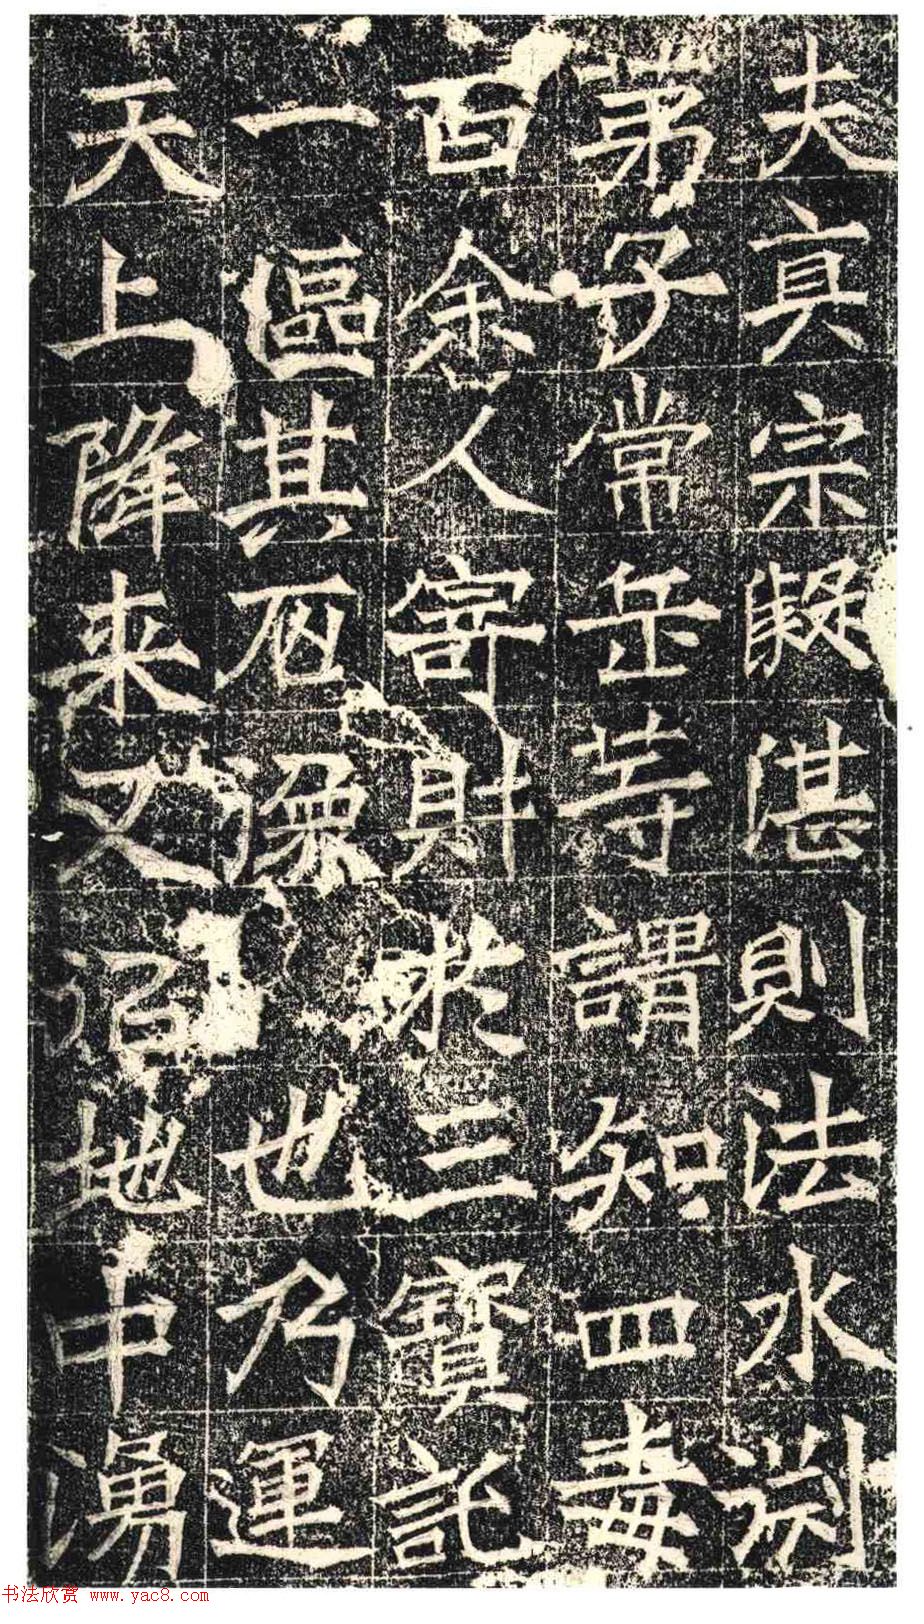 夫真宗凝湛則法水渕
弟子常岳等謂知四毒
百余人寄財於三寶託
一區其石像也乃運
天上降来又沼地中湧
书法欣赏 www.yac8.com